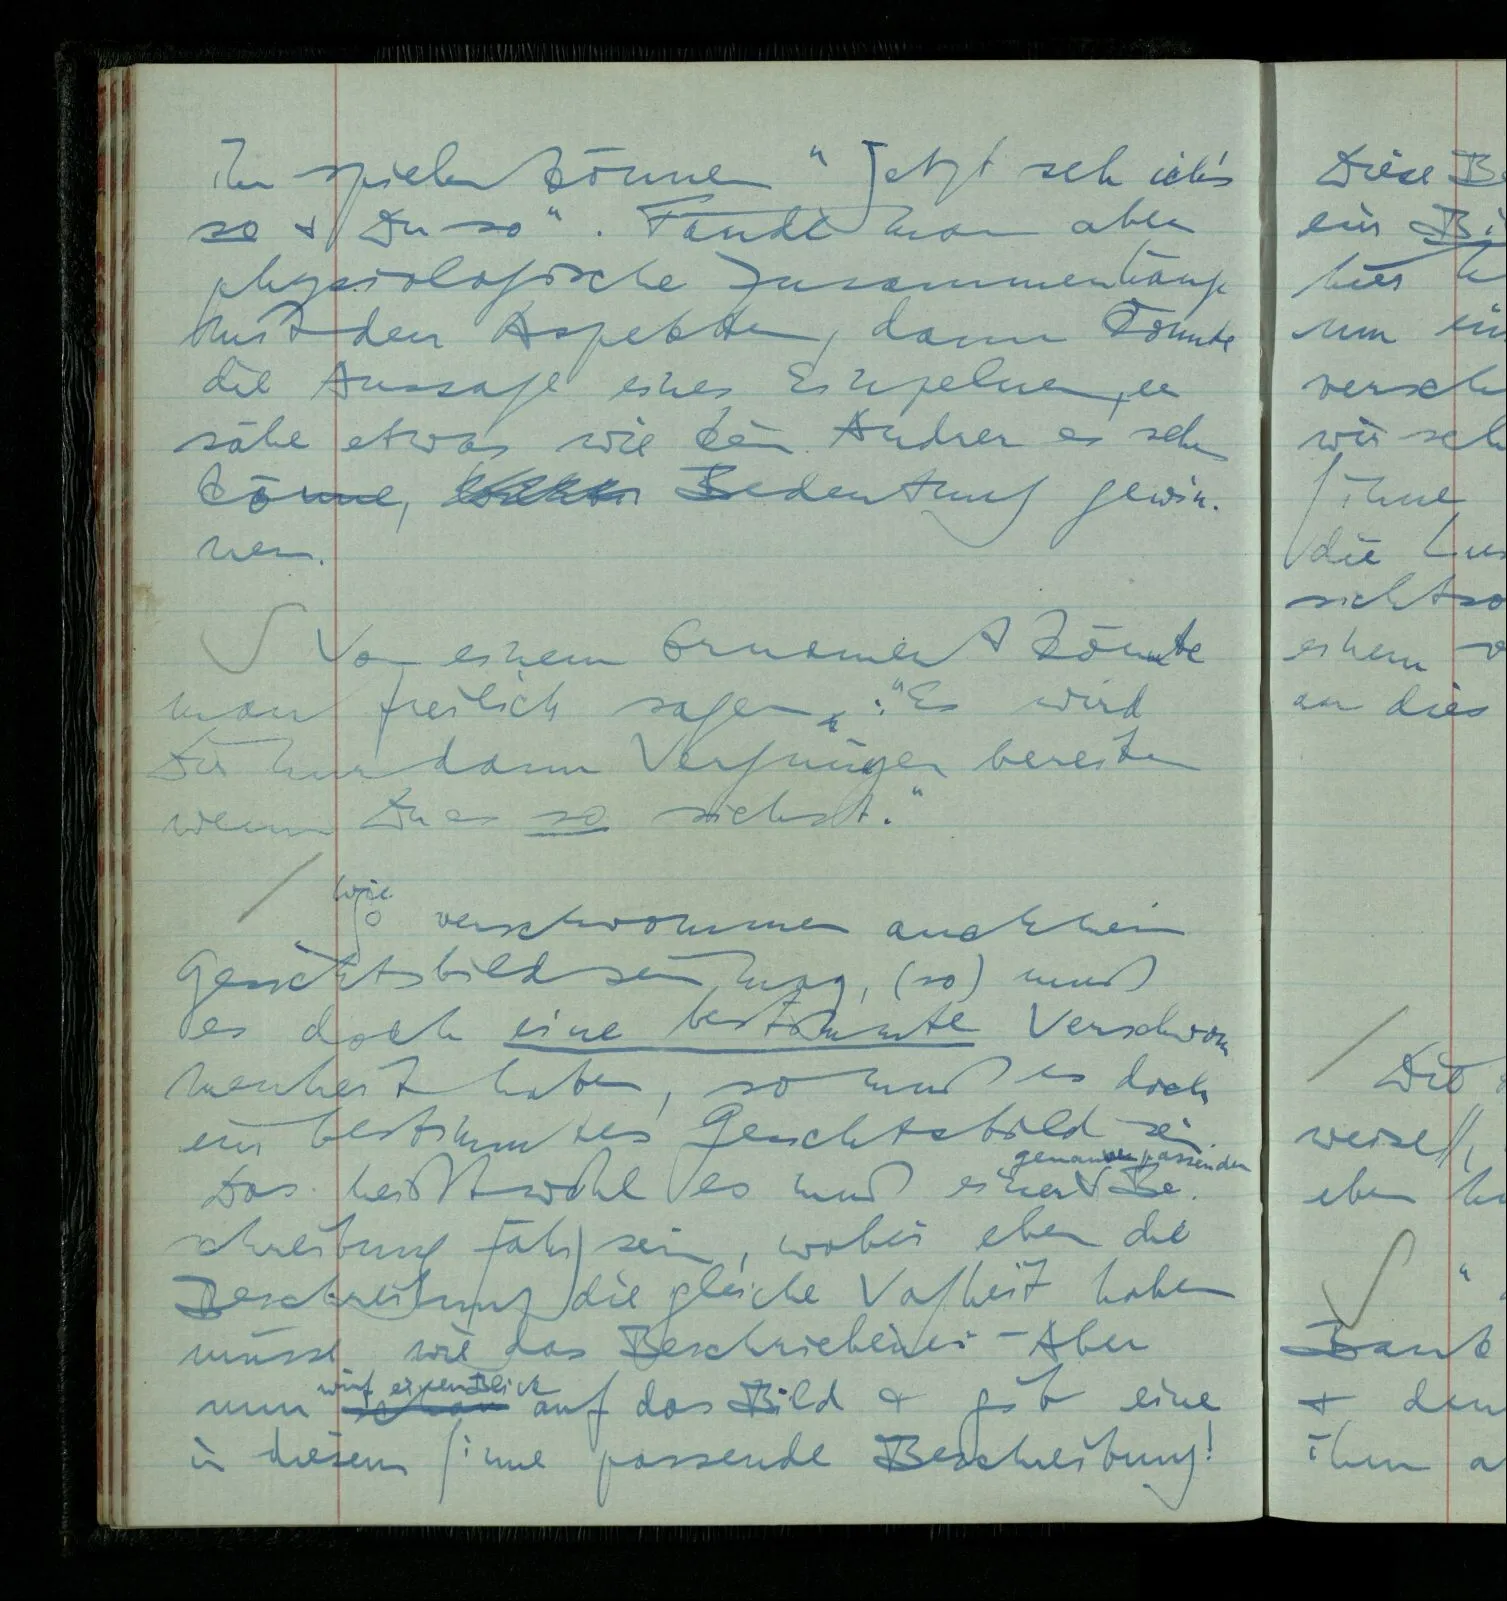 ihn spielen können “Jetzt seh ich's
so & Du so”. Fände man aber
physiologische Zusammenhänge
mit den Aspekten, dann könnte
die Aussage eines Einzelnen, er
sähe etwas wie kein Andrer es sehen
könne, Bedeutung gewin-
nen.
Von einem Ornament könnte
man freilich sagen: “Es wird
Dir nur dann Vergnügen bereiten
wenn Du es so siehst.”
wie
So verschwommen auch ein
Gesichtsbild sein mag, (so) muß
es doch eine bestimmte Verschwom
menheit haben, so muß es doch
ein bestimmtes Gesichtsbild sein.
genau passenden
Das heißt wohl es muß einer Be-
schreibung fähig sein, wobei eben die
Beschreibung die gleiche Vagheit haben
müsse wie das Beschriebene. – Aber
wirf einen Blick
nun schau auf das Bild & gib eine
in diesem Sinne passende Beschreibung!
Diese
ein
hier
nun
versch
wir
Sinne
die
sichtso
einem
an dies
Die
weise
eben
“
& den
ihm